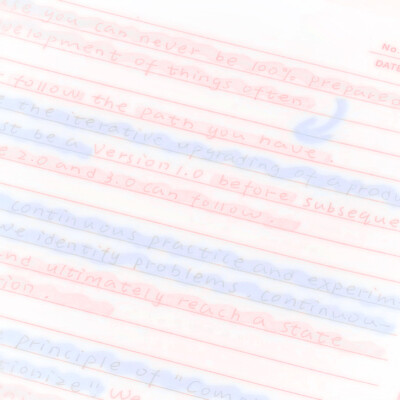 No.
DATE
you can never be 100% prepared
velopment of things often
follow the path you have.
the iterative upgrading of a produ
st be a Version 1.0 before subseque
2.0 and 3.0 can follow.
continuous practice and experim
we identify problems, continuou-
nd ultimately reach a state
ion.
principle of "Com
tionize" We